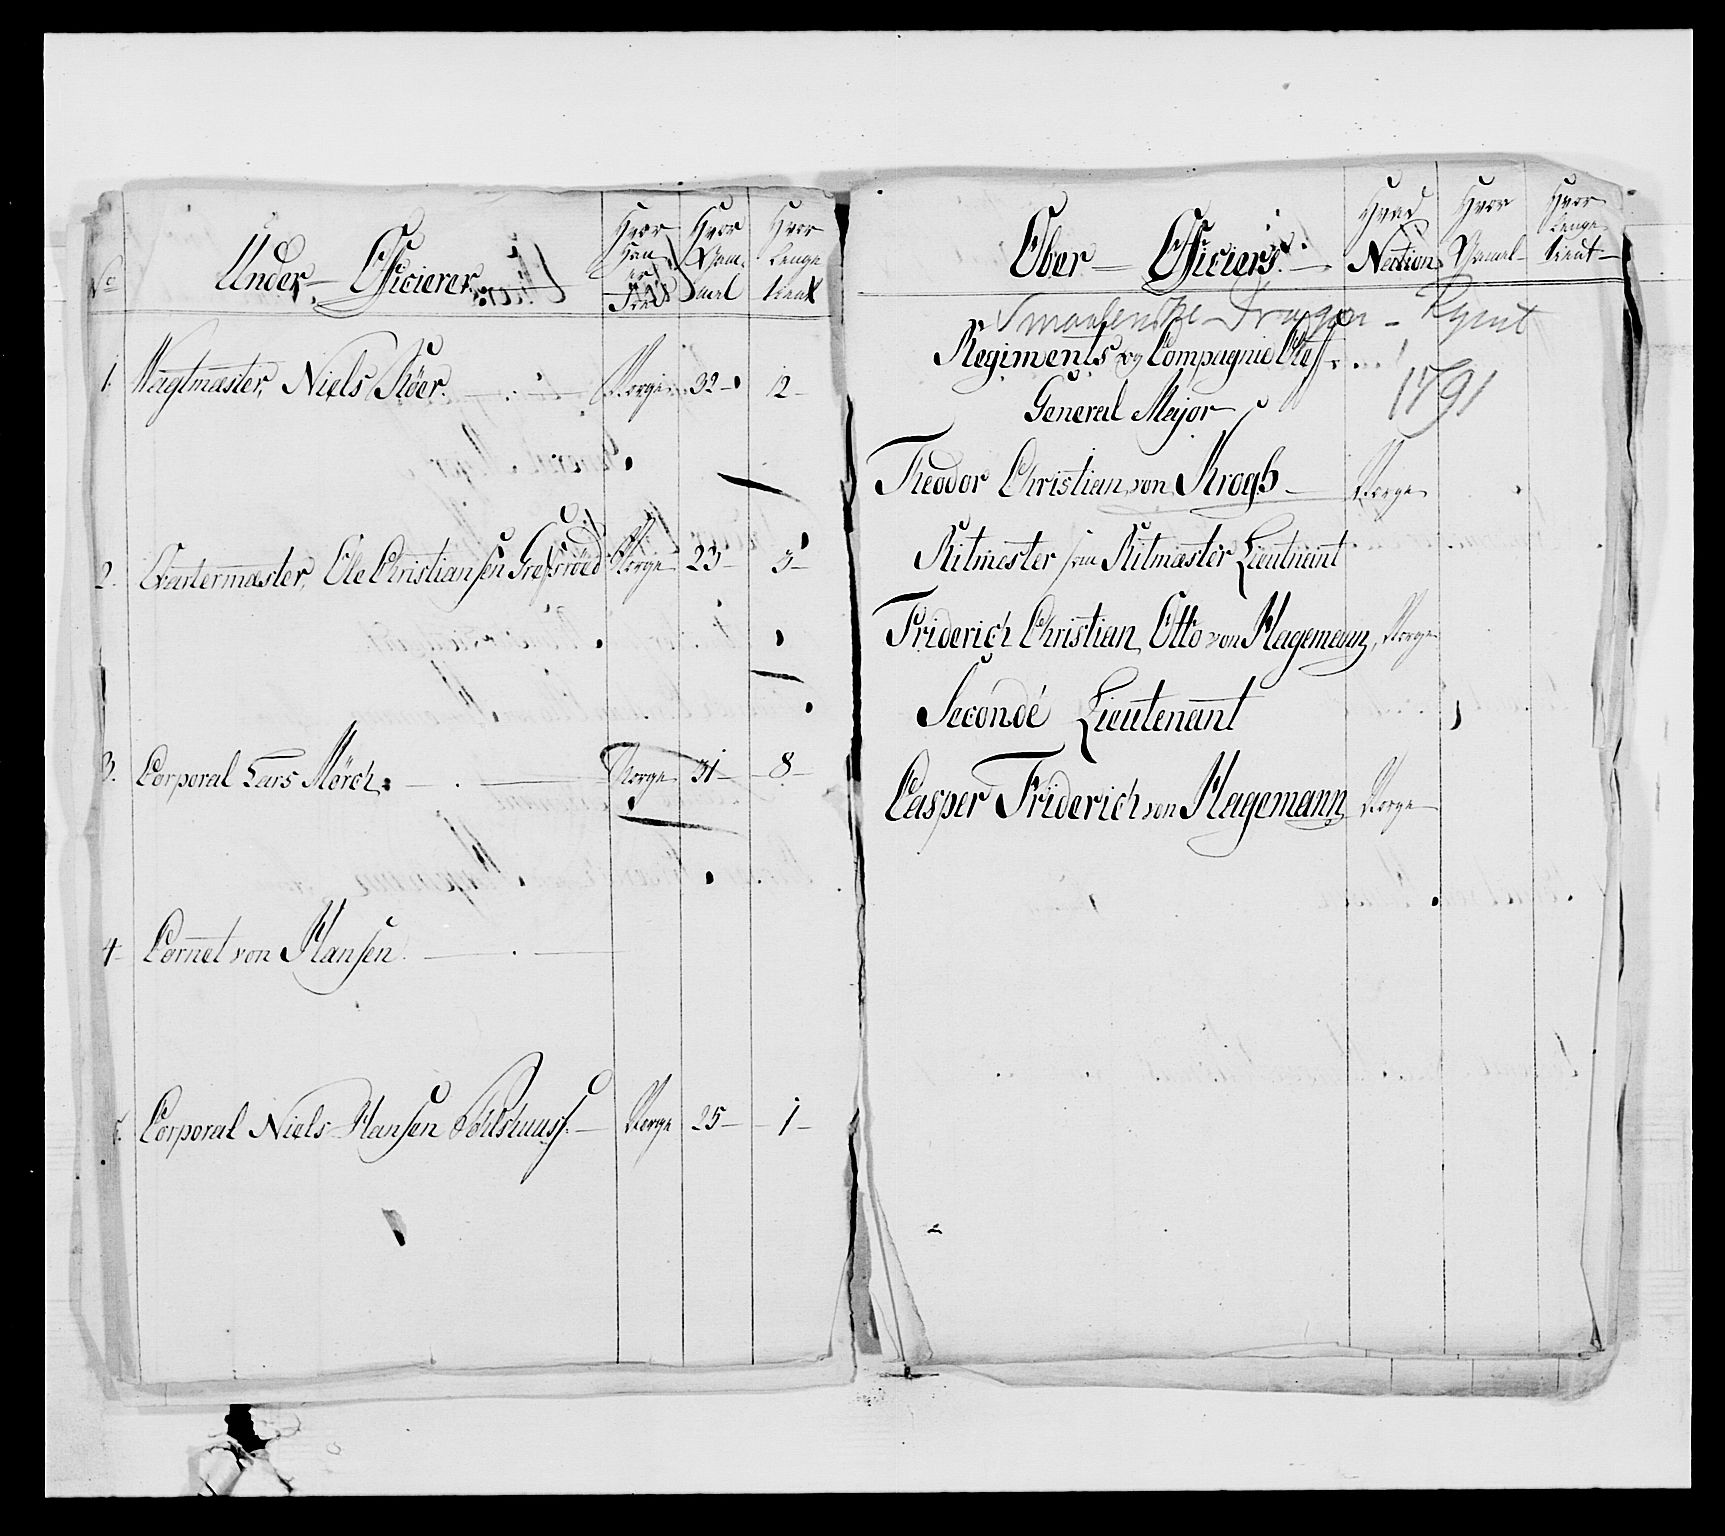 No Under-Officierer. Hvor Han er Fød Hvor Gam- mel Hvor Lenge tient
1. Wagtmæster, Niels Röer. Norge 32 12
2. Qvartermæster, Ole Christiansen Norge 23 3
3. Corporal Lars Mörch. Norge 31 8
4 Cornet von Hansen.
5. Corporal Niels Hansen Norge 25 1
Ober-Officiers. Hvad Nation Hvor Gamel Hvor Lenge tient
Smaalenske Dragon-Rgmt
Regiments og Compagnie Chef
1791
General Major
Theodor Christian von Krogh Norge
Ritmester som Ritmæster Lieutnant
Friderich Christian Otto von Hagemann, Norge
Secondé Lieutenant
Casper Friderich von Hagemann Norge